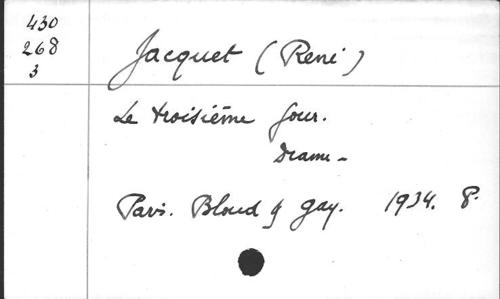 430
268
3
Jacquet (René)
Le troisième jour.
Drame -
Paris. Bloud & Gay. 1934. 8°.